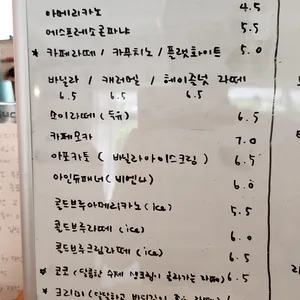 아메리카노 4.5
에스프레소 콘파냐 5.5
* 카페라떼 / 카푸치노 / 플랫화이트 5.0
바닐라 / 캐러멜 / 헤이즐넛 라떼
6.5 6.5 6.5
쏘이라떼 (두유) 6.5
카페모카 7.0
아포카토 (바닐라아이스크림) 6.5
아인슈패너 (비엔나) 6.0
콜드브루아메리카노 (ice) 5.5
콜드브루라떼 (ice) 6.0
콜드브루크림라떼 (ice) 6.5
* 코코 (달콤한 수제 생크림이 올라가는 라떼) 6.5
* 크리미